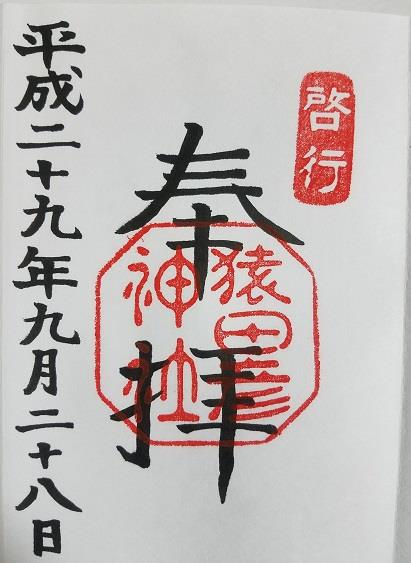 啓行
奉拝
猿田彦
神社
平成二十九年九月二十八日